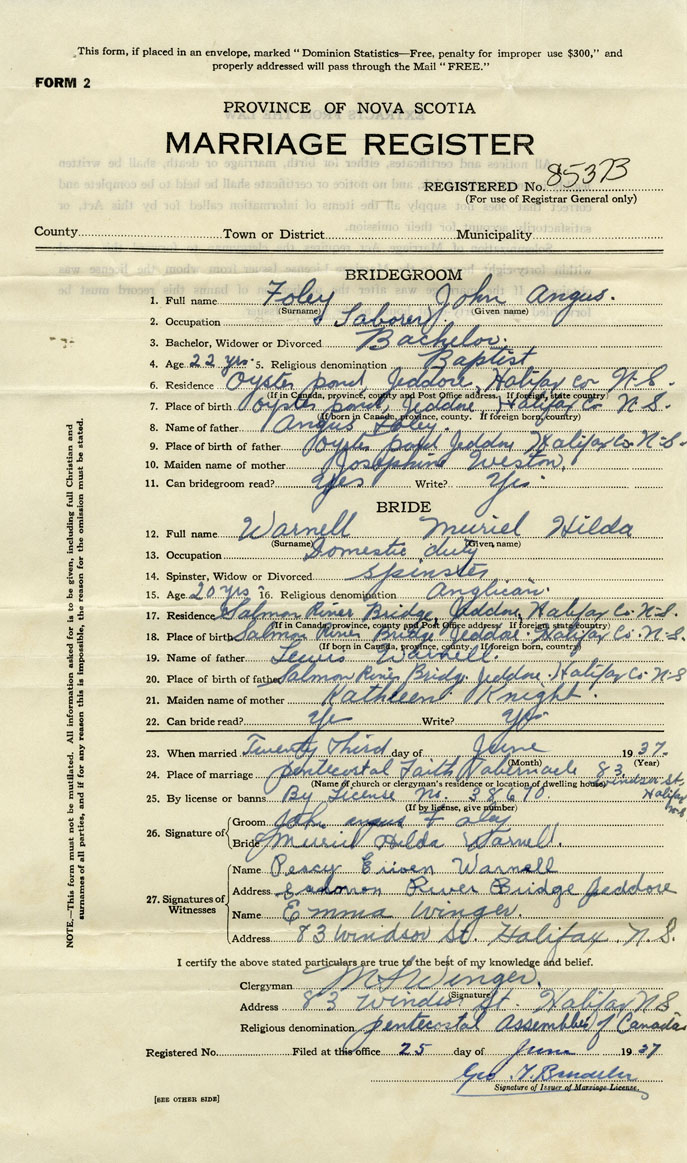 This form, if placed in an envelope, marked "Dominion Statistics—Free, penalty for improper use $300," and
properly addressed will pass through the Mail "FREE."
FORM 2
PROVINCE OF NOVA SCOTIA
MARRIAGE REGISTER
REGISTERED No. 85373
(For use of Registrar General only)
County Town or District Municipality
BRIDEGROOM
1. Full name Foley John Angus.
(Surname) (Given name)
2. Occupation Laborer.
3. Bachelor, Widower or Divorced Bachelor.
4. Age 22 yrs. 5. Religious denomination Baptist
6. Residence Oyster pond, Jeddore, Halifax Co N-S.
(If in Canada, province, county and Post Office address. If foreign, state country)
7. Place of birth Oyster pond, Jeddore Halifax Co N.S.
(If born in Canada, province, county. If foreign born, country)
8. Name of father Angus Foley.
9. Place of birth of father Oyster pond Jeddore Halifax Co. N-S.
10. Maiden name of mother Josephine Weston.
11. Can bridegroom read? Yes Write? Yes.
BRIDE
12. Full name Warnell Muriel Hilda
(Surname) (Given name)
13. Occupation Domestic duty
14. Spinster, Widow or Divorced Spinster
15. Age 20 yrs 16. Religious denomination Anglican.
17. Residence Salmon River Bridge, Jeddore, Halifax Co. N-S.
(If in Canada, province, county and Post Office address If foreign, state country)
18. Place of birth Salmon River Bridge Jeddore. Halifax Co. N-S.
(If born in Canada, province, county. If foreign born, country)
19. Name of father Lewis Warnell.
20. Place of birth of father Salmon River Bridge. Jeddore. Halifax Co. N-S
21. Maiden name of mother Kathleen Knight.
22. Can bride read? Yes Write? Yes.
23. When married Twenty Third day of June 1937.
(Month) (Year)
24. Place of marriage pentecostal Faith Tabernacle 83 windsor St, Halifax N-S
(Name of church or clergyman's residence or location of dwelling house)
25. By license or banns By License No. 38670.
(If by license, give number)
26. Signature of Groom John angus Foley
Bride Muriel Hilda Warnell.
27. Signatures of Witnesses
Name Percy Warnell
Address Salomon River Bridge Jeddore
Name Emma Winger.
Address 83 Windsor St. Halifax. N.S.
I certify the above stated particulars are true to the best of my knowledge and belief.
Clergyman Winger.
(Signature)
Address 83 Windsor St. Halifax N S
Religious denomination pentecostal Assemblies of Canada
Registered No. Filed at this office 25 day of June 1937
Geo.
Signature of Issuer of Marriage License.
[SEE OTHER SIDE]
NOTE.—This form must not be mutilated. All information asked for is to be given, including full Christian and
surnames of all parties, and if for any reason this is impossible, the reason for the omission must be stated.